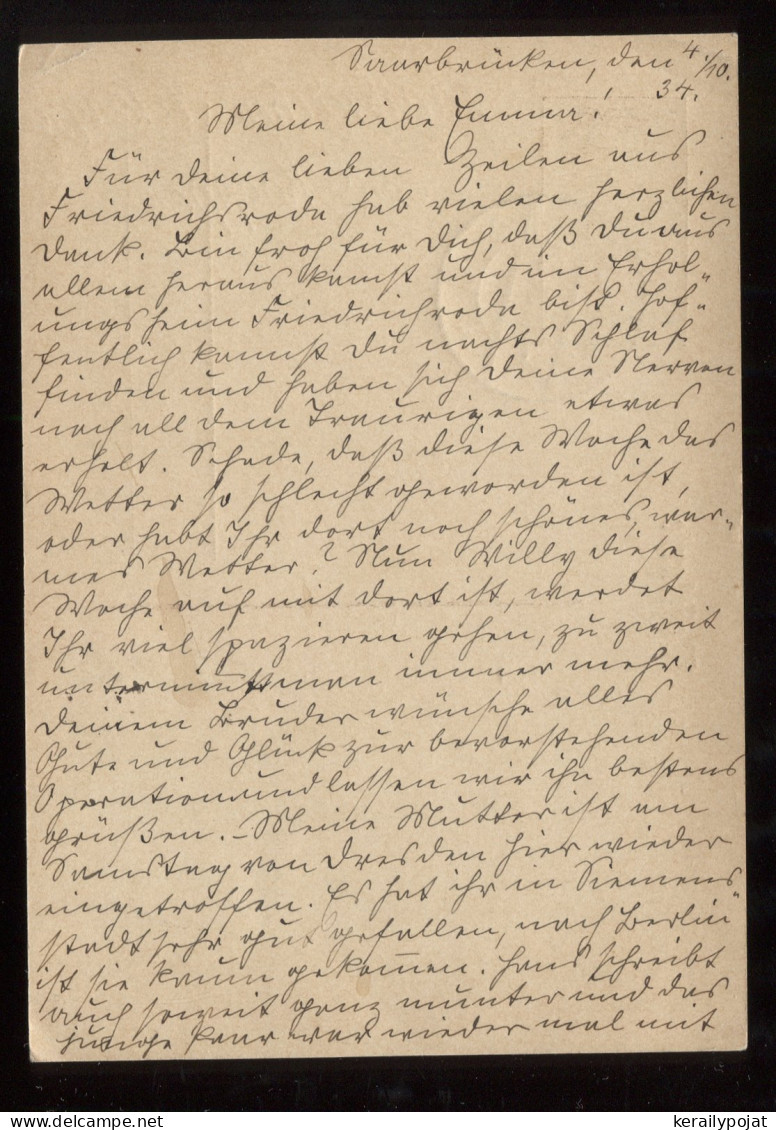 Saarbrücken, den 4./10.
34.
Meine liebe Emma!
Für deine lieben Zeilen aus
Friedrichsroda hab vielen herzlichen
Dank. Bin froh für Dich, daß Du aus
allem heraus kamst und im Erhol„
ungsheim Friedrichroda bist. Hof„
fentlich kannst Du nachts Schlaf
finden und haben sich Deine Nerven
nach all dem Traurigen etwas
erholt. Schade, daß diese Woche das
Wetter so schlecht geworden ist,
oder habt Ihr dort noch schönes, war„
mes Wetter? Nun Willy diese
Woche auf mit dort ist, werdet
Ihr viel spazieren gehen, zu zweit
unternimmt man immer mehr.
Deinem Bruder wünsche alles
Gute und Glück zur bevorstehenden
Operation und lassen wir ihn bestens
grüßen. – Meine Mutter ist am
Samstag von Dresden hier wieder
eingetroffen. Es hat ihr in Siemens„
stadt sehr gut gefallen, nach Berlin
ist sie kaum gekommen. Hans schreibt
auch soweit ganz munter und das
junge Paar war wieder mal mit
kerailypojat